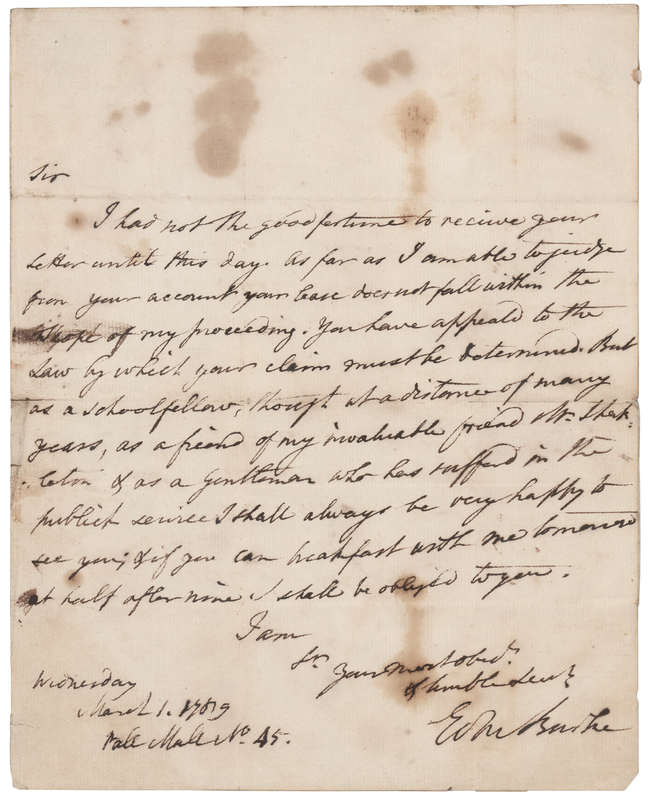 Sir
I had not the good fortune to receive your
letter until this day. As far as I am able to judge
from your account your Case does not fall within the
Scope of my proceeding. You have appeald to the
Law by which your claim must be determined. But
as a schoolfellow, though at a distance of many
years, as a friend of my invaluable friend Mr. Shack-
leton & as a Gentleman who has sufferd in the
publick service I shall always be very happy to
see you; & if you can breakfast with me tomorrow
at half after nine I shall be obliged to you.
I am
Sr
Your most obedt
& humble Servt
Edm Burke
Wednesday
March 1.
Pall Mall No. 45.